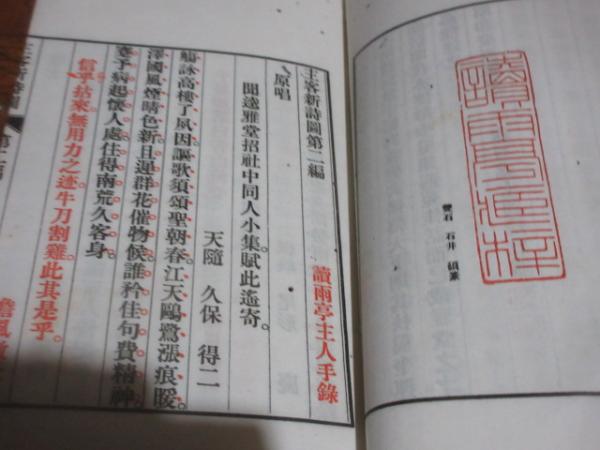 石井
主客新詩圖第二編
讀雨亭主人手錄
原唱
聞遠雅堂招社中同人小集賦此遙寄。
天隨 久保 得二
觴詠高樓了夙因謳歌須頌聖朝春。江天鷗鷺漲痕暖
澤國風煙晴色新。且遲群花催物候誰矜佳句費精神。
予病起懷人處住得南荒久客身。
信乎拈來無用力之迹牛刀割雞此其是乎。
風
客新詩圖 第二編